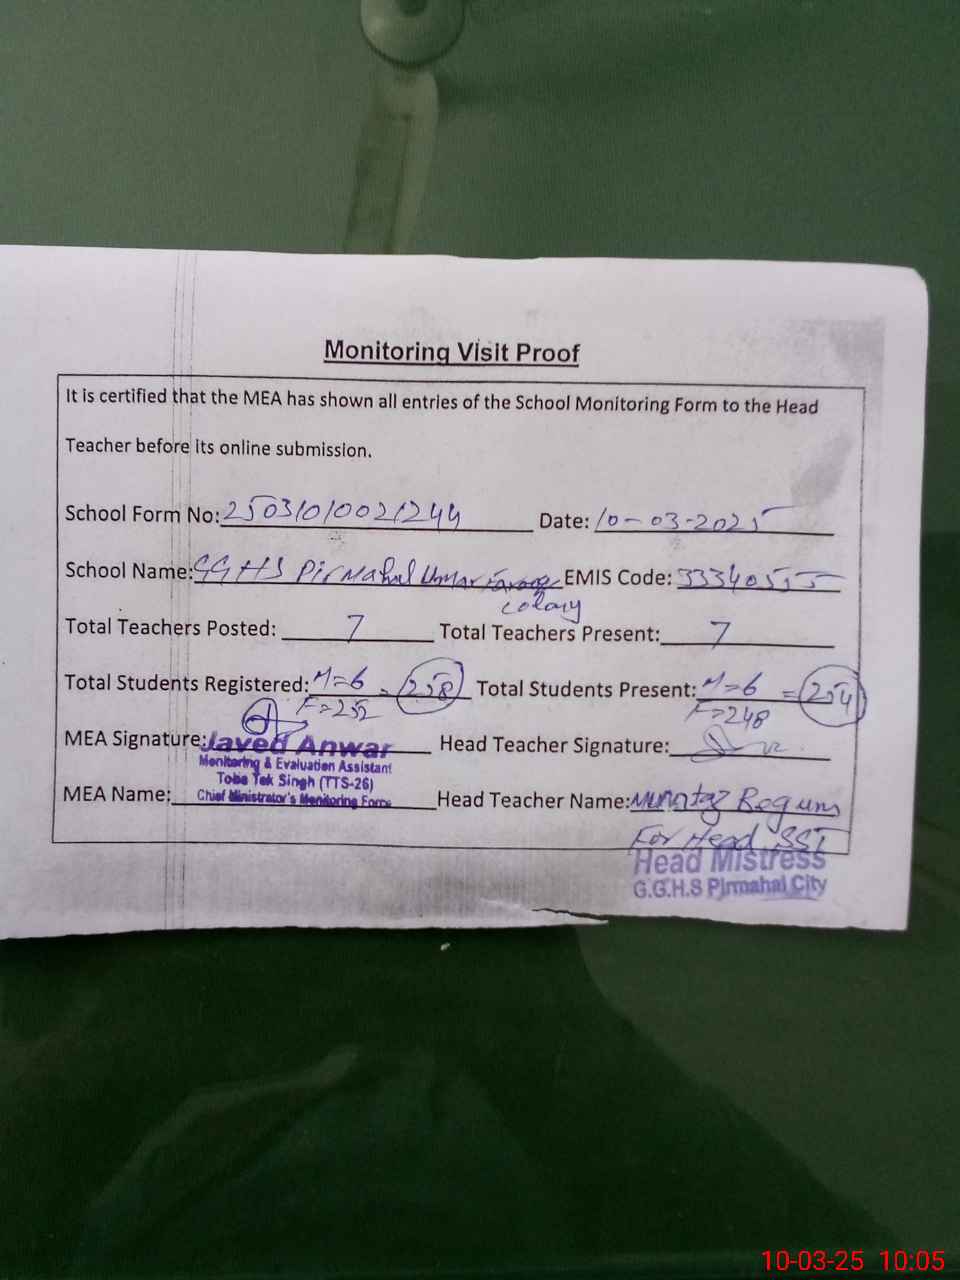 Monitoring Visit Proof
It is certified that the MEA has shown all entries of the School Monitoring Form to the Head
Teacher before its online submission.
School Form No: 25031010021244 Date: 10-03-2025
School Name: GGHS Pirmahal Umar Farooq EMIS Code: 33340555
colony
Total Teachers Posted: 7 Total Teachers Present: 7
Total Students Registered: M=6 = 258 Total Students Present: M=6 = 254
F=252 F=248
MEA Signature: Javed Anwar Head Teacher Signature:
Monitoring & Evaluation Assistant
Toba Tek Singh (TTS-26)
MEA Name: Chief Ministrator's Monitoring Force Head Teacher Name: Mumtaz Begum
For Head SST
Head Mistress
G.G.H.S Pirmahal City
10-03-25 10:05